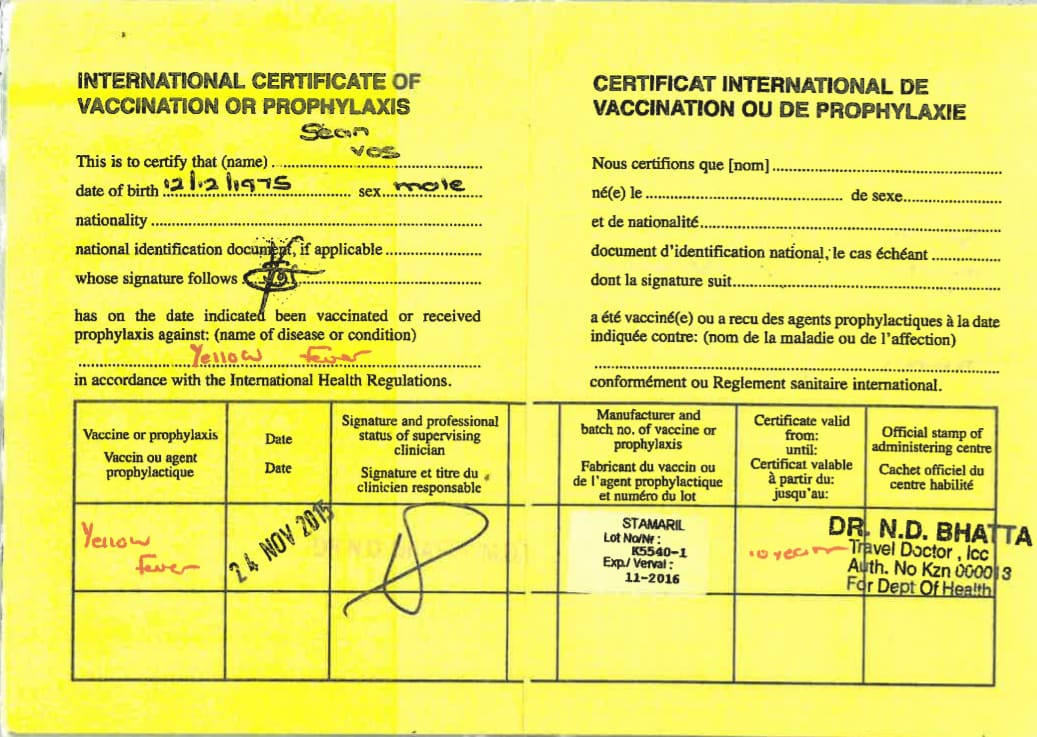 INTERNATIONAL CERTIFICATE OF
VACCINATION OR PROPHYLAXIS
Sean
vos
This is to certify that (name)
date of birth 12/12/1975 sex male
nationality
national identification document, if applicable
whose signature follows
has on the date indicated been vaccinated or received
prophylaxis against: (name of disease or condition)
Yellow Fever
in accordance with the International Health Regulations.
CERTIFICAT INTERNATIONAL DE
VACCINATION OU DE PROPHYLAXIE
Nous certifions que [nom]
né(e) le de sexe
et de nationalité
document d'identification national, le cas échéant
dont la signature suit
a été vacciné(e) ou a recu des agents prophylactiques à la date
indiquée contre: (nom de la maladie ou de l'affection)
conformément ou Reglement sanitaire international.
Vaccine or prophylaxis
Vaccin ou agent
prophylactique
Date
Date
Signature and professional
status of supervising
clinician
Signature et titre du
clinicien responsable
Manufacturer and
batch no. of vaccine or
prophylaxis
Fabricant du vaccin ou
de l'agent prophylactique
et numéro du lot
Certificate valid
from:
until:
Certificat valable
à partir du:
jusqu'au:
Official stamp of
administering centre
Cachet officiel du
centre habilité
Yellow
Fever
24 NOV 2015
STAMARIL
Lot No/Nr :
K5540-1
Exp./ Verval :
11-2016
10 years
DR. N.D. BHATTA
Travel Doctor, Icc
Auth. No Kzn 000013
For Dept Of Health